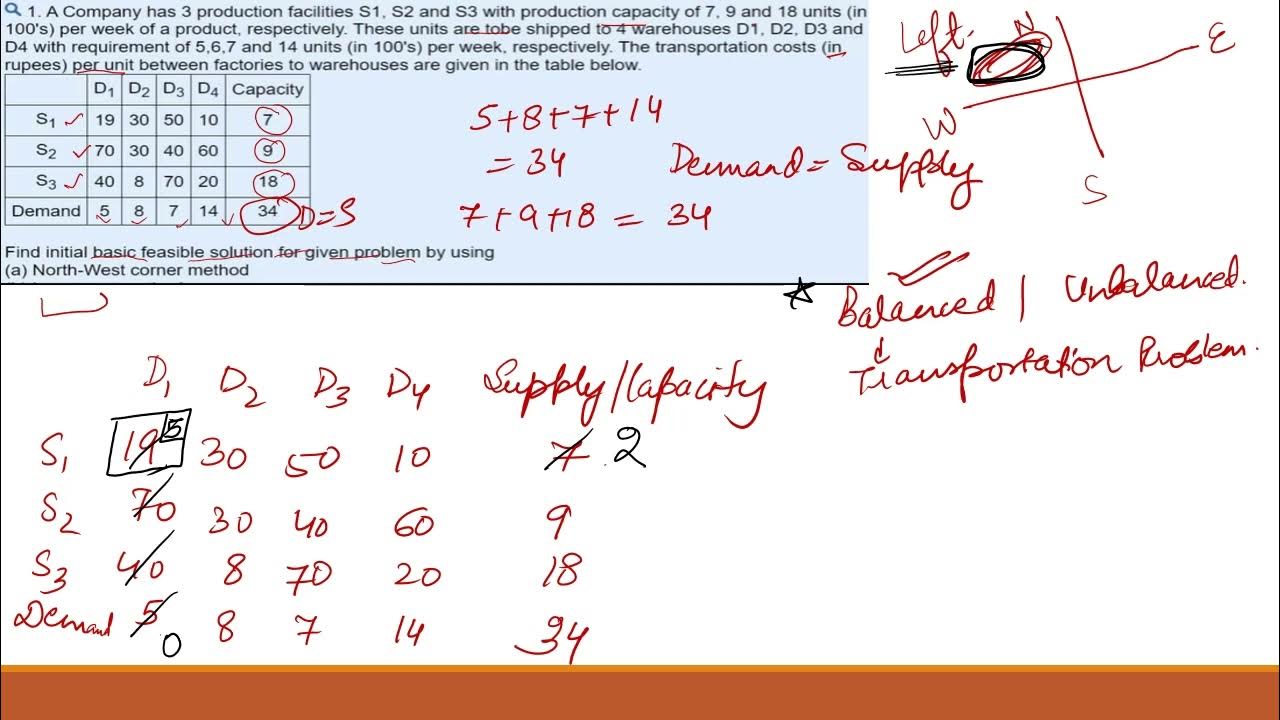 1. A Company has 3 production facilities S1, S2 and S3 with production capacity of 7, 9 and 18 units (in
100's) per week of a product, respectively. These units are tobe shipped to 4 warehouses D1, D2, D3 and
D4 with requirement of 5,6,7 and 14 units (in 100's) per week, respectively. The transportation costs (in
rupees) per unit between factories to warehouses are given in the table below.
D1 D2 D3 D4 Capacity
S1 19 30 50 10 7
S2 70 30 40 60 9
S3 40 8 70 20 18
Demand 5 8 7 14 34 D=S
Find initial basic feasible solution for given problem by using
(a) North-West corner method
5+8+7+14
= 34
Demand = Supply
7+9+18 = 34
Left.
N
E
W
S
Balanced / Unbalanced.
Transportation Problem.
D1 D2 D3 D4 Supply/Capacity
S1 19 5 30 50 10 7 2
S2 70 30 40 60 9
S3 40 8 70 20 18
Demand 5 0 8 7 14 34